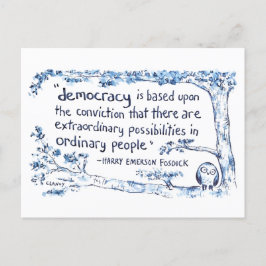 "democracy is based upon
the conviction that there are
extraordinary possibilities in
ordinary people"
~HARRY EMERSON FOSDICK
CLANCY